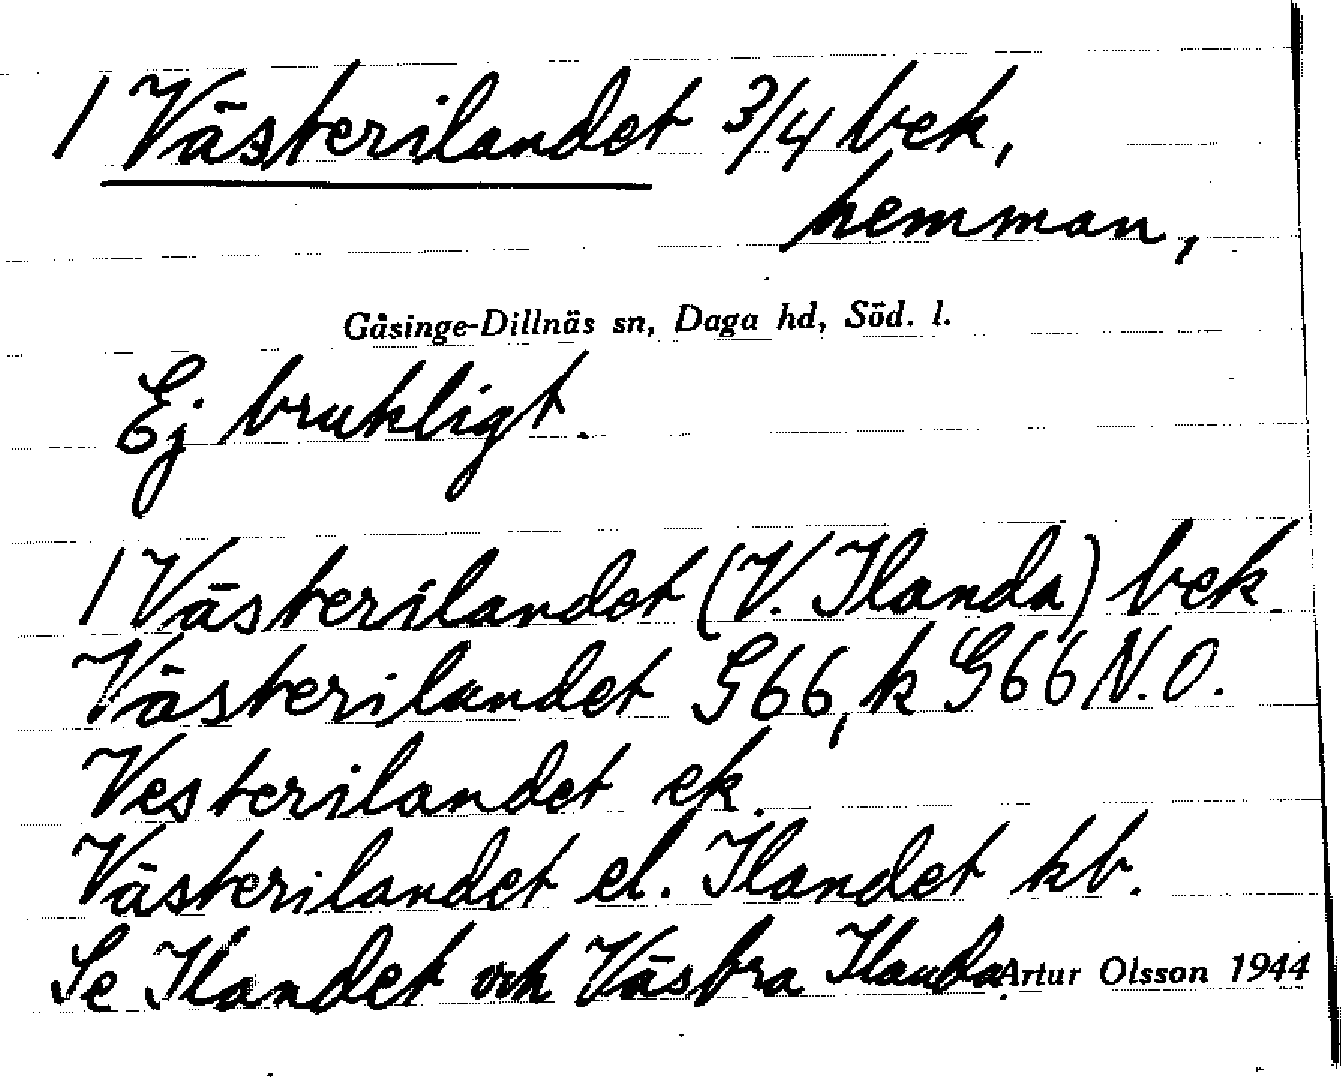 1 Västerilandet 3/4 bek,
hemman,
Gåsinge-Dillnäs sn, Daga hd, Söd. l.
Ej brukligt.
1 Västerilandet (V. Ilanda) bek.
Västerilandet G66, k G66 N.O.
Vesterilandet ek.
Västerilandet el. Ilandet kb.
Se Ilandet och Västra Ilanda. Artur Olsson 1944